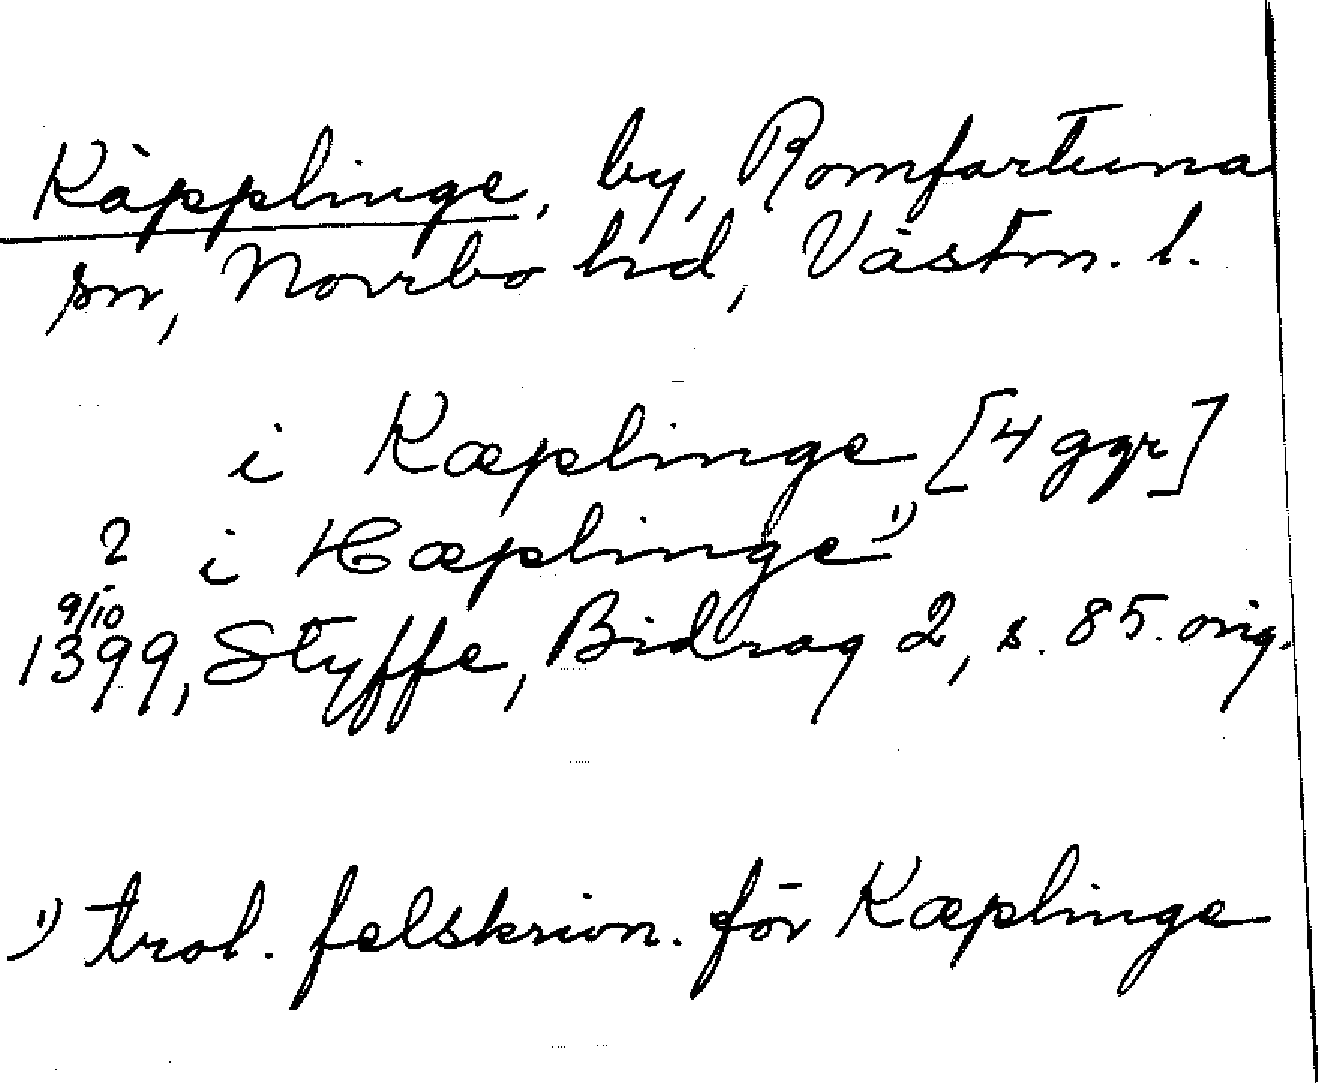 Käpplinge, by, Romfartuna
sn, Norrbo hd, Västm. l.
i Kæplinge [4 ggr]
? i Hæplinge 1)
9/10
1399, Styffe, Bidrag 2, s. 85. orig.
1) trol. felskrivn. för Kæplinge